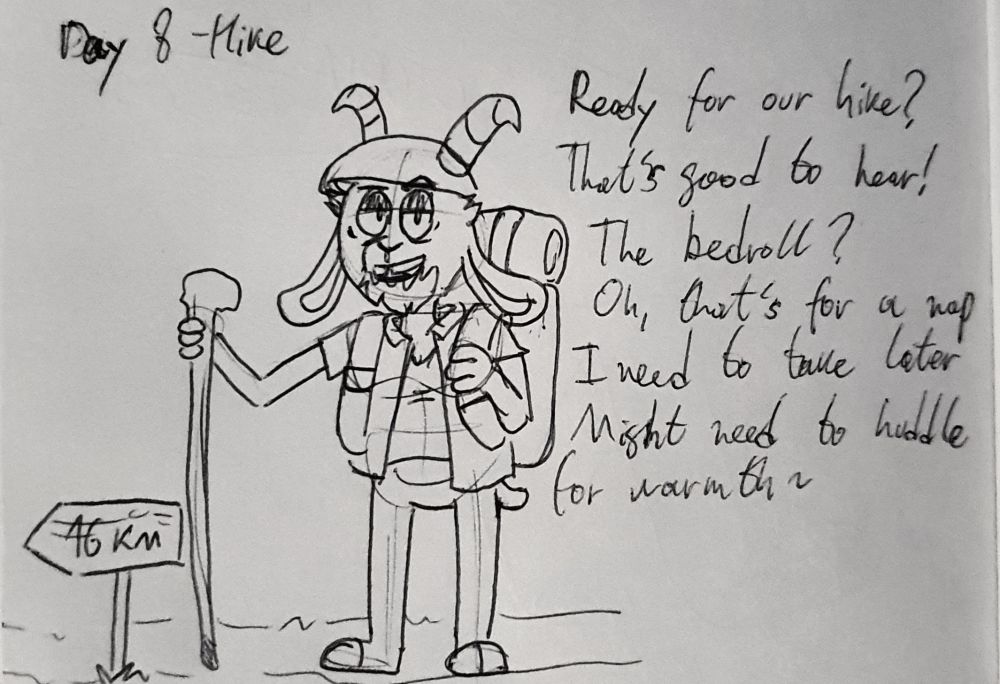 Day 8 - Hike
Ready for our hike?
That's good to hear!
The bedroll?
Oh, that's for a nap
I need to take later
Might need to huddle
for warmth ~
46 KM